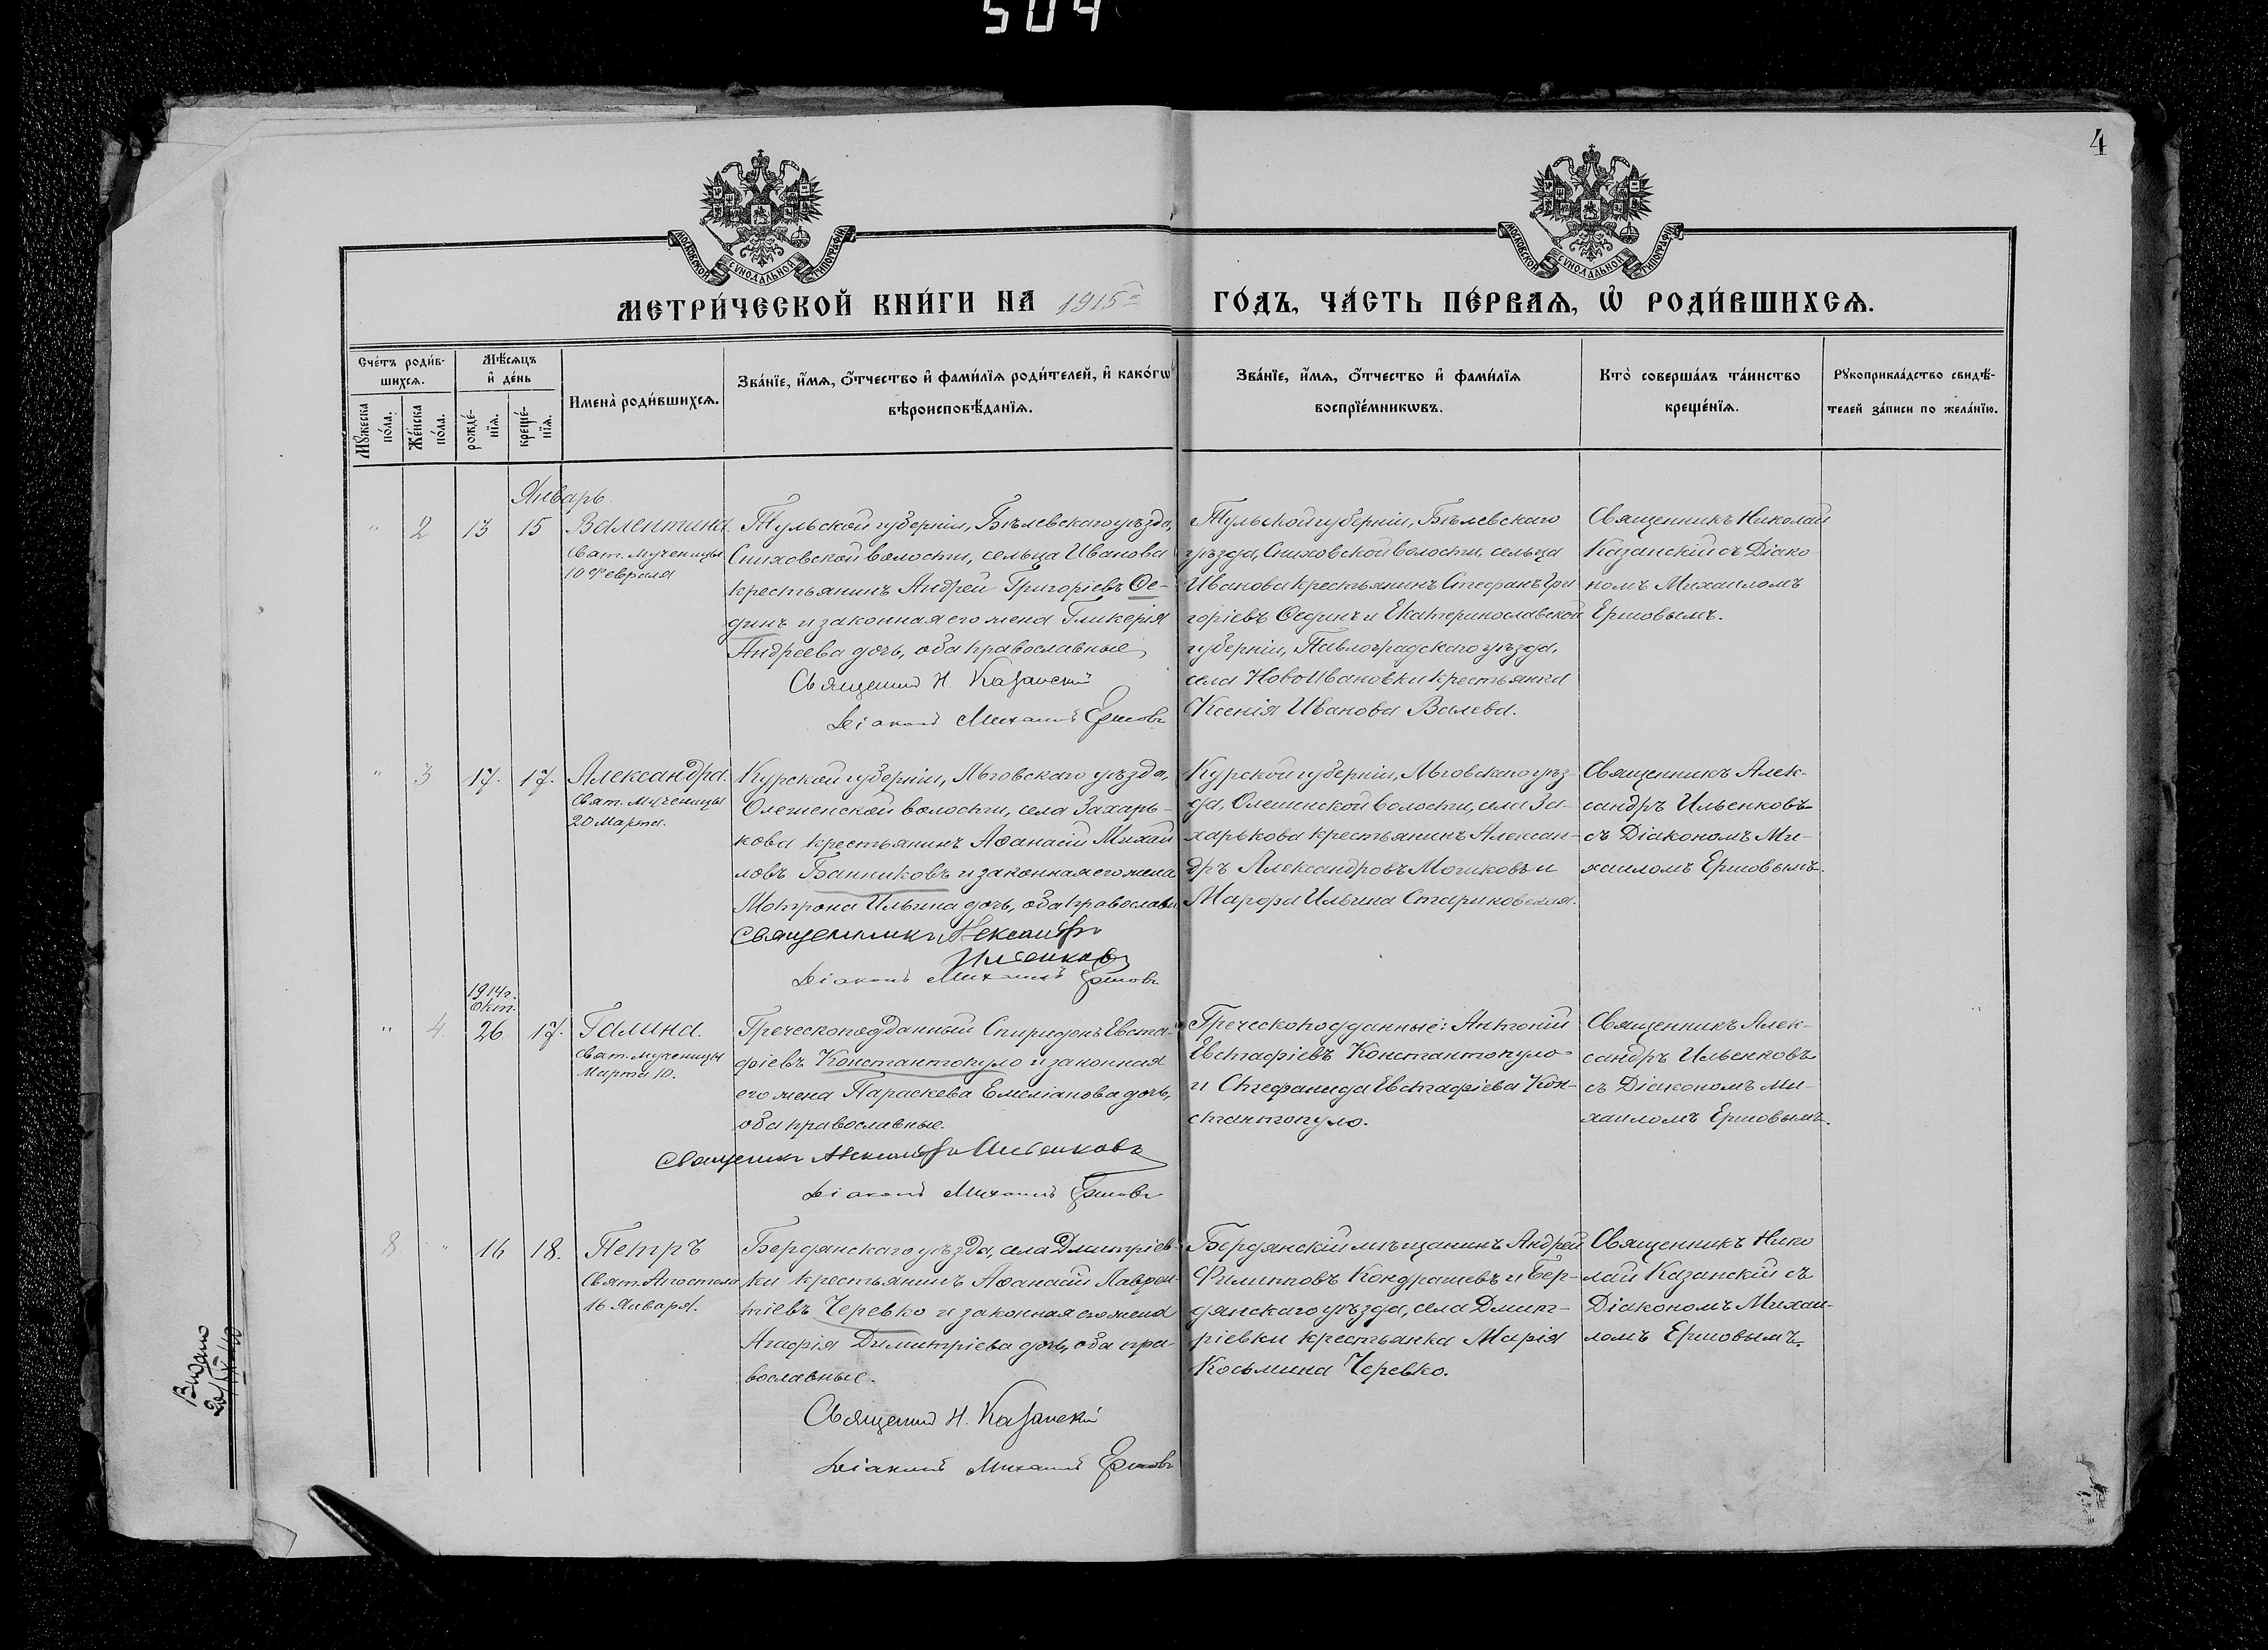 504
4
МОСКОВСКОЙ СѴНОДАЛЬНОЙ ТИПОГРАФІИ
МОСКОВСКОЙ СѴНОДАЛЬНОЙ ТИПОГРАФІИ
МЕТРИ́ЧЕСКОЙ КНИ́ГИ НА 1915й ГО́ДЪ, ЧА́СТЬ ПЕ́РВАѦ, Ѽ РОДИ́ВШИХСѦ.
Счéтъ роди́в-
шихсѧ.
Мѣ́сѧцъ
и҆ де́нь
Мꙋ́жеска
по́ла.
Же́нска
по́ла.
рожде́-
нїѧ.
креще́-
нїѧ.
И҆мена̀ роди́вшихсѧ.
Зва́нїе, и҆́мѧ, ѻ҆́тчество и҆ фами́лїѧ роди́телей, и҆ како́гѡ
вѣроисповѣ́данїѧ.
Зва́нїе, и҆́мѧ, ѻ҆́тчество и҆ фами́лїѧ
воспрїе́мникѡвъ.
Кто̀ соверша́лъ та́инство
креще́нїѧ.
Рꙋкоприкла́дство свидѣ́-
телей за́писи по жела́нїю.
Январь
" 2 13 15 Валентина.
Свят. Мученицы
10 Февраля
Тульской губерніи, Бѣлевскаго уѣзда,
Сныховской волости, сельца Иванова
крестьянинъ Андрей Григоріевъ Ѳе-
динъ и законная его жена Гликерія
Андреева дочь, оба православные,
Священникъ Н. Казанскій
Діаконъ Михаилъ Ершовъ
Тульской губерніи, Бѣлевскаго
уѣзда, Сныховской волости, сельца
Иванова крестьянинъ Стефанъ Гри
горіевъ Ѳединъ и Екатеринославской
губерніи, Павлоградскаго уѣзда,
села НовоИвановки крестьянка
Ксенія Иванова Валева.
Священникъ Николай
Казанскій съ Діако
номъ Михаиломъ
Ершовымъ.
" 3 17. 17. Александра.
Свят. Мученицы
20 Марта.
Курской губерніи, Льговскаго уѣзда,
Олешенской волости, села Захарь-
кова крестьянинъ Аѳанасій Михай
ловъ Банниковъ и законная его жена
Мотрона Ильина дочь, оба православн
Священникъ Александръ
Ильенковъ
Діаконъ Михаилъ Ершовъ
Курской губерніи, Льговскаго уѣз-
да, Олешенской волости, села За-
харькова крестьянинъ Алексан-
дръ Александровъ Мочиковъ и
Марфа Ильина Стариковская.
Священникъ Алек-
сандръ Ильенковъ
съ Діакономъ Ми-
хаиломъ Ершовымъ.
1914г.
Окт.
" 4 26 17. Галина.
Свят. Мученицы
Марта 10.
Греческоподданный Спиридонъ Евста-
фіевъ Константопуло и законная
его жена Параскева Емеліанова дочь,
оба православные.
Священникъ Александръ Ильенковъ
Діаконъ Михаилъ Ершовъ
Греческоподданные: Антоній
Евстафіевъ Константопуло
и Стефанида Евстафіева Кон-
стантопуло.
Священникъ Алек-
сандръ Ильенковъ
съ Діакономъ Ми-
хаиломъ Ершовымъ.
8 " 16 18. Петръ
Свят. Апостола
16 Января.
Бердянскаго уѣзда, села Дмитріев-
ки крестьянинъ Аѳанасій Лаврен-
тіевъ Черевко и законная его жена
Агафія Димитріева дочь, оба пра-
вославные.
Священникъ Н. Казанскій
Діаконъ Михаилъ Ершовъ
Бердянскій мѣщанинъ Андрей
Филипповъ Кондрашевъ и Бер-
дянскаго уѣзда, села Дмит-
ріевки крестьянка Марія
Косьмина Черевко.
Священникъ Нико
лай Казанскій съ
Діакономъ Михаи-
ломъ Ершовымъ.
Видано
20/IX 40